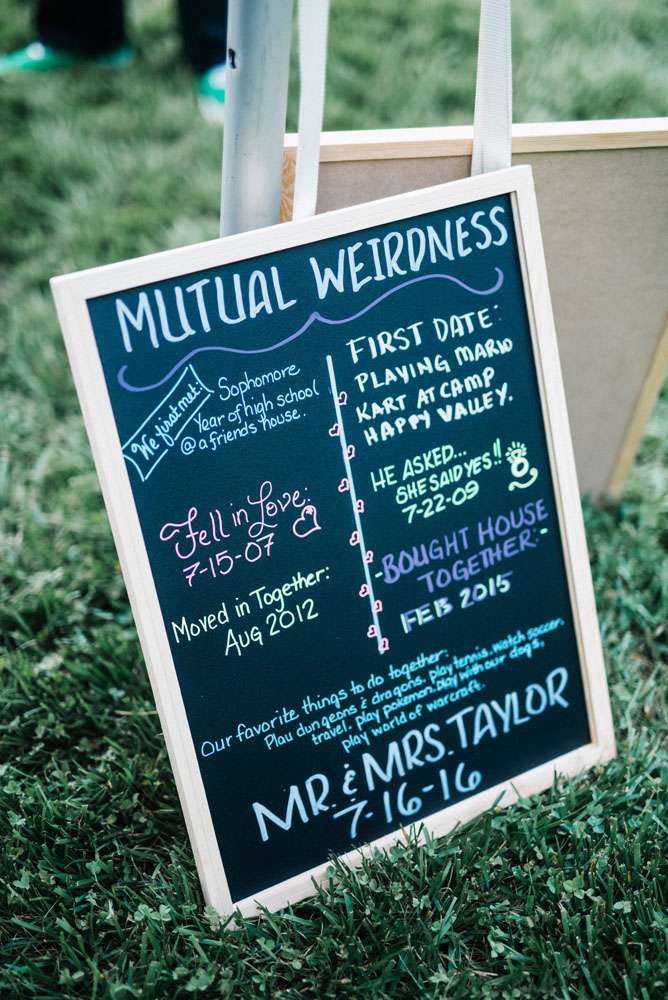 MUTUAL WEIRDNESS
We first met:
Sophomore
Year of high school
@ a friends house.
FIRST DATE:
PLAYING MARIO
KART AT CAMP
HAPPY VALLEY.
Fell in Love:
7-15-07
HE ASKED...
SHE SAID YES!!
7-22-09
Moved in Together:
AUG 2012
-BOUGHT HOUSE
TOGETHER:-
FEB 2015
Our favorite things to do together:
Plau dungeons & dragons, play tennis, watch soccer,
travel, play pokemon, play with our dogs,
play world of warcraft.
MR. & MRS. TAYLOR
7-16-16